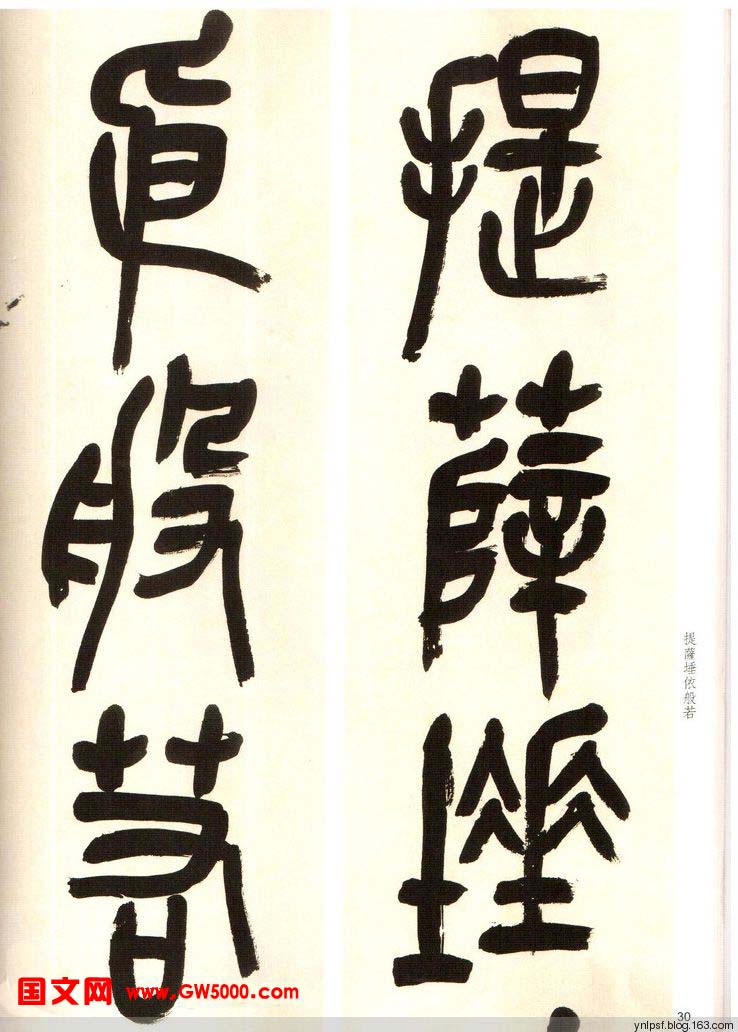 提薩埵
依般若
提薩埵依般若
30
国文网 www.GW5000.com
ynlpsf.blog.163.com